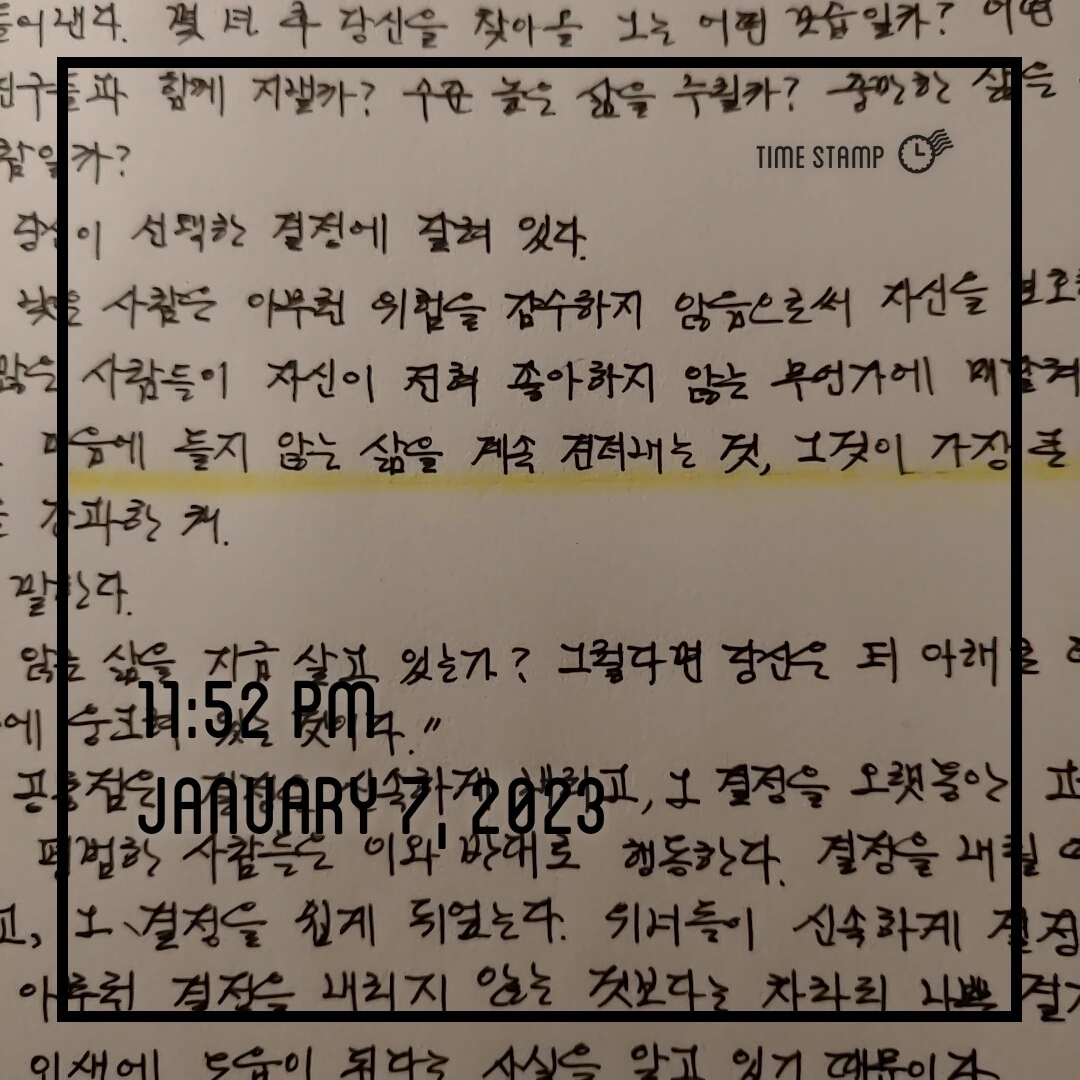 들어낸다. 몇 년 후 당신을 찾아올 그는 어떤 모습일까? 어떤
친구들과 함께 지낼까? 수준 높은 삶을 누릴까? 충만한 삶을
참일까?
TIME STAMP
당신이 선택한 결정에 달려 있다.
많은 사람들은 아무런 위험을 감수하지 않음으로써 자신을
많은 사람들이 자신이 전혀 좋아하지 않는 무언가에 매달려
마음에 들지 않는 삶을 계속 견뎌내는 것, 그것이 가장 큰
간과한 채.
말한다.
않는 삶을 지금 살고 있는가? 그렇다면 당신은 퇴 아래로
에 웅크려 있는 것이다."
11:52 PM
공통점은 결정을 신속하게 내리고, 그 결정을 오랫동안
JANUARY 7, 2023
평범한 사람들은 이와 반대로 행동한다. 결정을 내릴
고, 그 결정을 쉽게 뒤엎는다. 리더들이 신속하게 결정
아무런 결정을 내리지 않는 것보다는 차라리 나쁜
인생에 도움이 된다는 사실을 알고 있기 때문이다